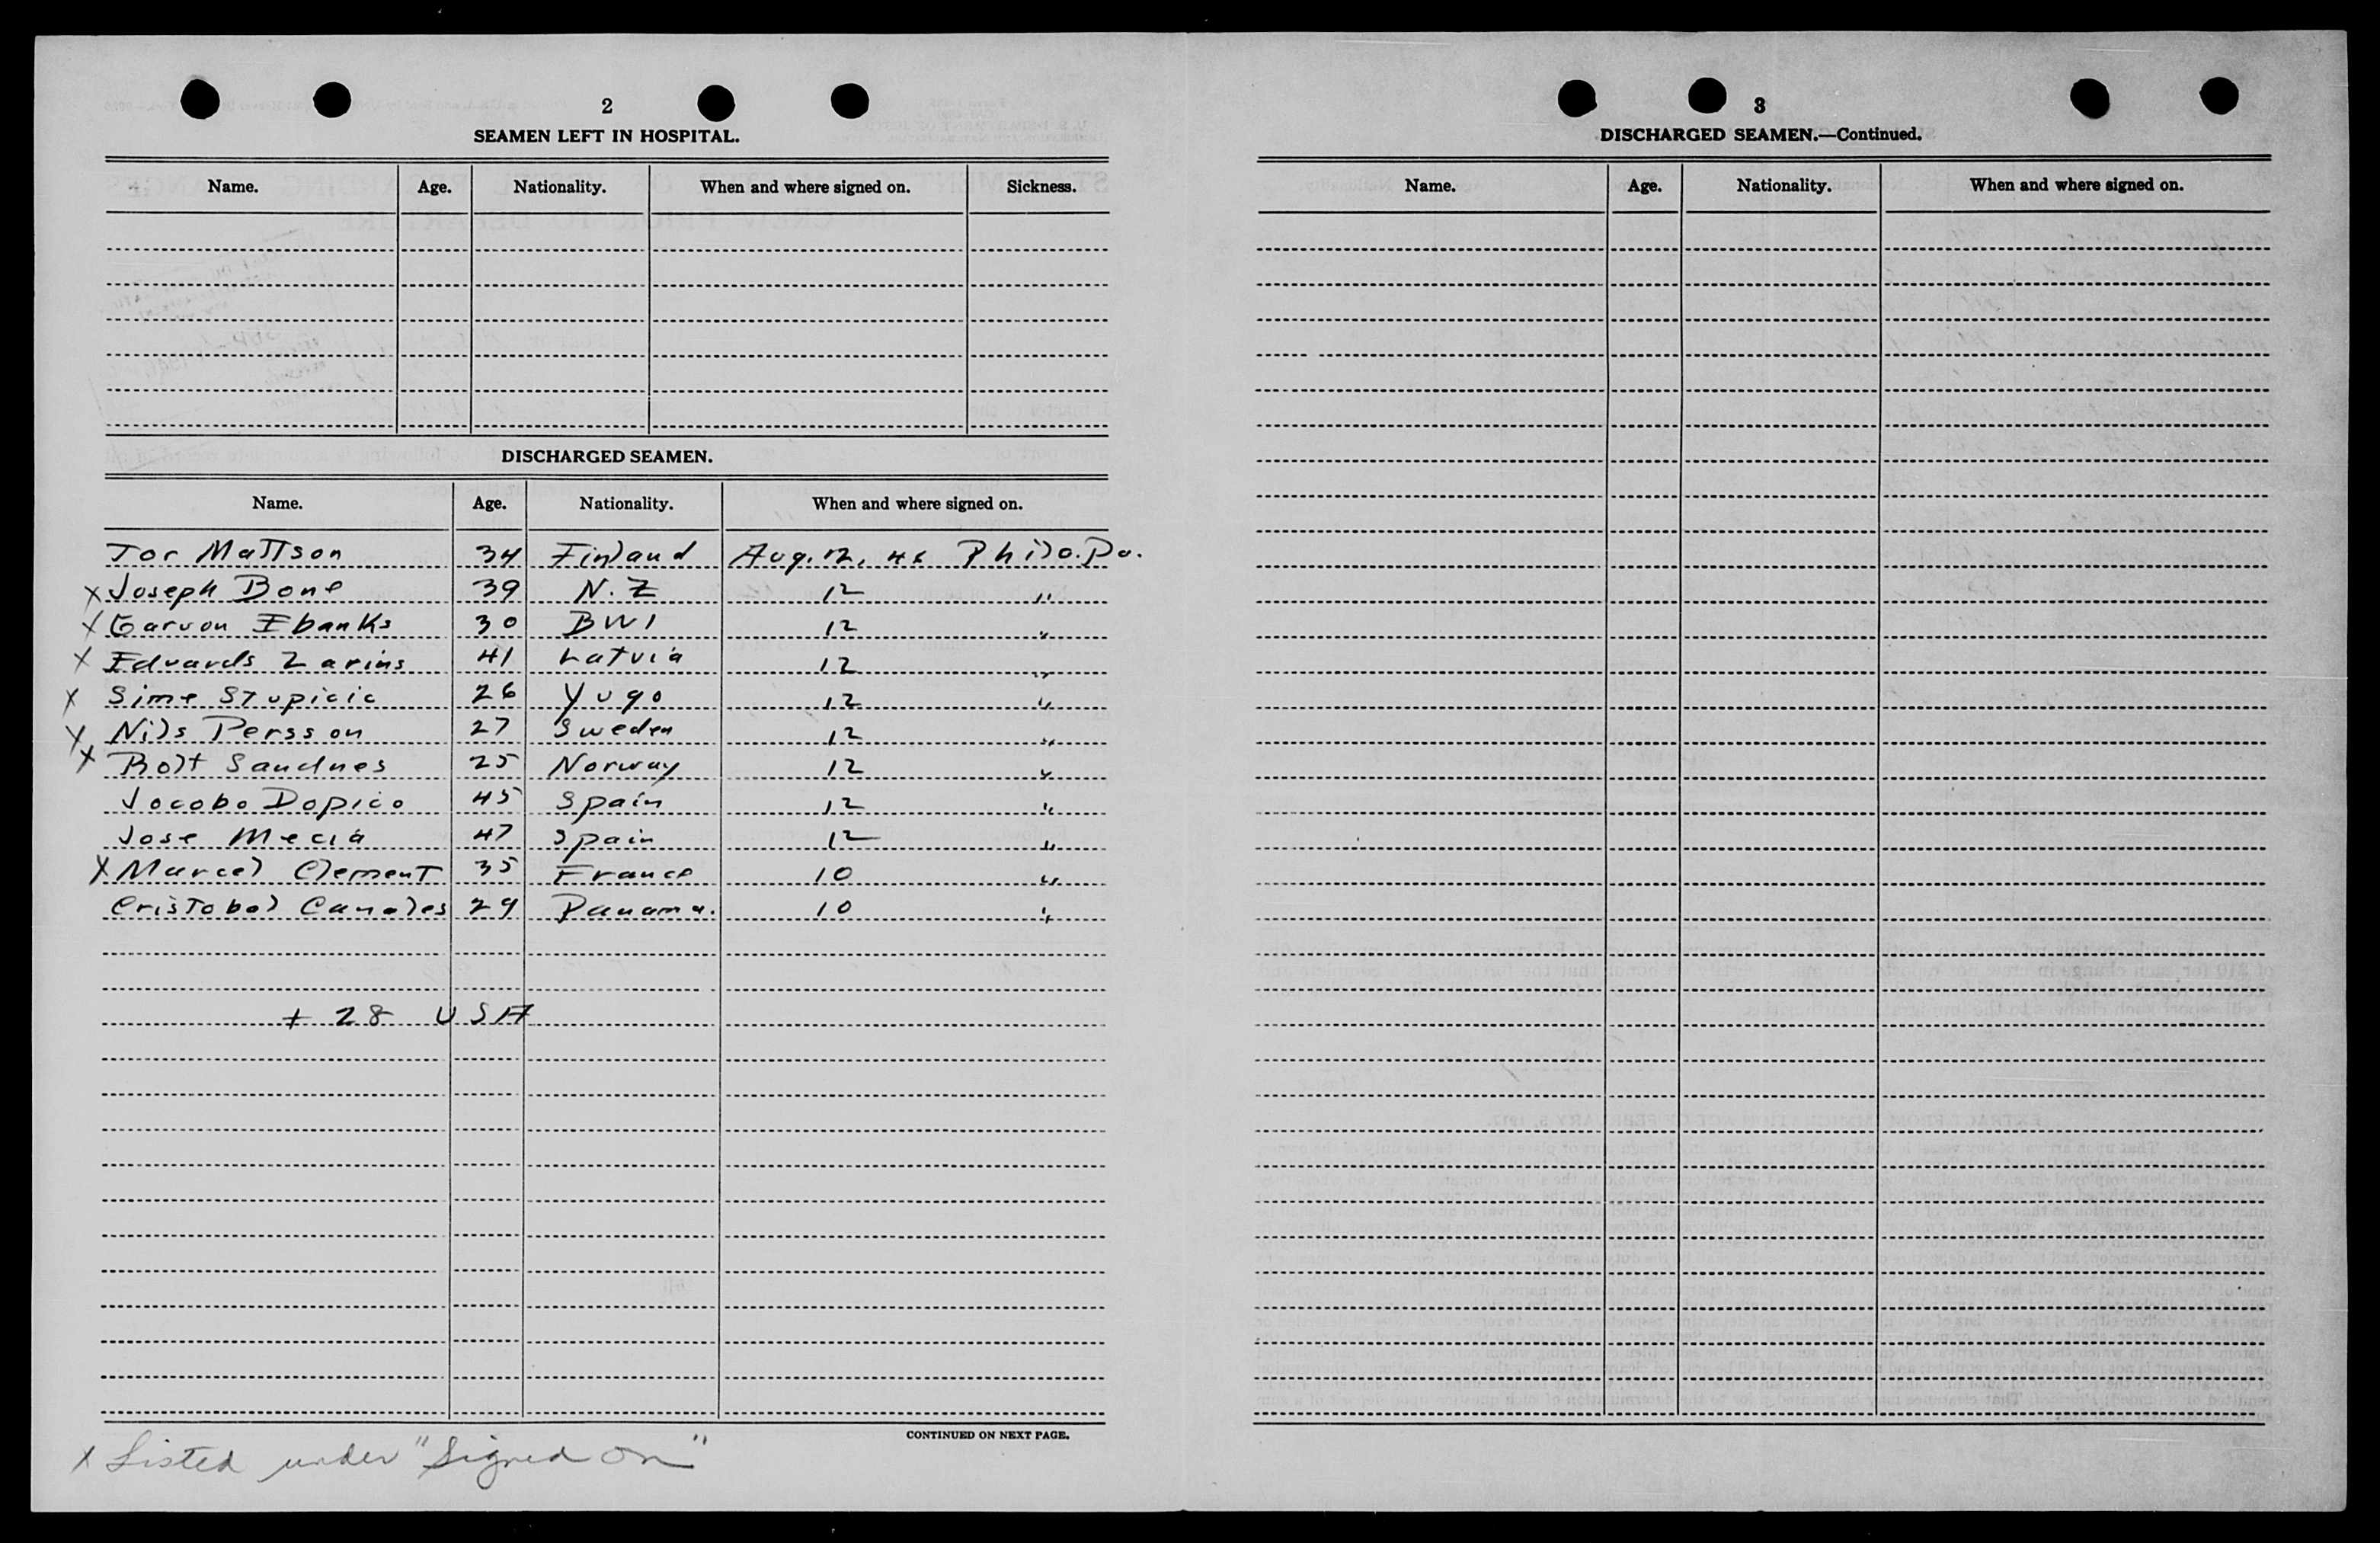 2
SEAMEN LEFT IN HOSPITAL.
Name. Age. Nationality. When and where signed on. Sickness.
DISCHARGED SEAMEN.
Name. Age. Nationality. When and where signed on.
Tor Mattson 34 Finland Aug. 12, 46 Phila. Pa.
x Joseph Bone 39 N.Z 12 "
x Garvon Ebanks 30 BWI 12 "
x Eduards Zarins 41 Latvia 12 "
x Sime Stupicic 26 Yugo 12 "
x Nils Persson 27 Sweden 12 "
x Rolt Sandnes 25 Norway 12 "
Jocobo Dopico 45 Spain 12 "
Jose Mecia 47 Spain 12 "
x Marcel Clement 35 France 10 "
Cristobal Canales 29 Panama. 10 "
+ 28 USA
CONTINUED ON NEXT PAGE.
x Listed under "Signed on"
3
DISCHARGED SEAMEN.—Continued.
Name. Age. Nationality. When and where signed on.